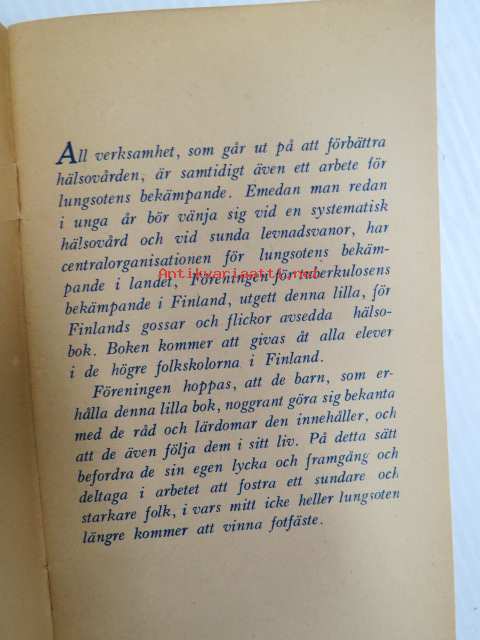 All verksamhet, som går ut på att förbättra
hälsovården, är samtidigt även ett arbete för
lungsotens bekämpande. Emedan man redan
i unga år bör vänja sig vid en systematisk
hälsovård och vid sunda levnadsvanor, har
centralorganisationen för lungsotens bekäm-
pande i landet, Föreningen för tuberkulosens
bekämpande i Finland, utgett denna lilla, för
Finlands gossar och flickor avsedda hälso-
bok. Boken kommer att givas åt alla elever
i de högre folkskolorna i Finland.
Föreningen hoppas, att de barn, som er-
hålla denna lilla bok, noggrant göra sig bekanta
med de råd och lärdomar den innehåller, och
att de även följa dem i sitt liv. På detta sätt
befordra de sin egen lycka och framgång och
deltaga i arbetet att fostra ett sundare och
starkare folk, i vars mitt icke heller lungsoten
längre kommer att vinna fotfäste.
Antikvariaatti.net